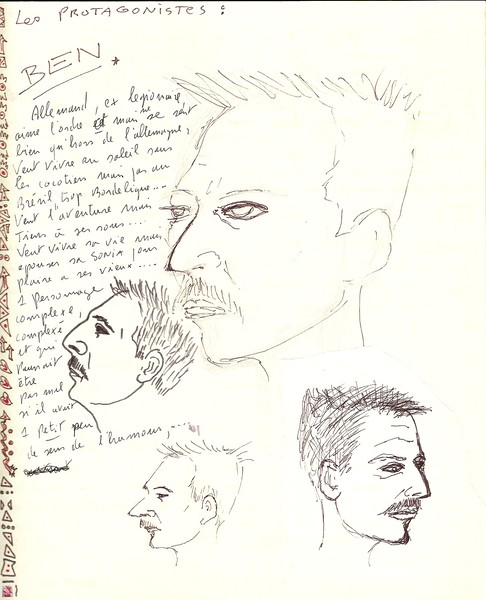 Les PROTAGONISTES :
BEN *
Allemand, ex legionnaire
aime l'ordre et mais ne se sent
bien qu'hors de l'allemagne,
Veut vivre au soleil sous
les cocotiers mais pas au
Brésil, trop Bordelique...
Veut l'aventure mais
Tiens à ses sous....
Veut vivre sa vie mais
epouser sa SONIA pour
plaire a ses vieux....
1 Personnage
complexe,
complexé
et qui
Pourrait
être
pas mal
si il avait
1 Petit peu
de sens de l'humour,....